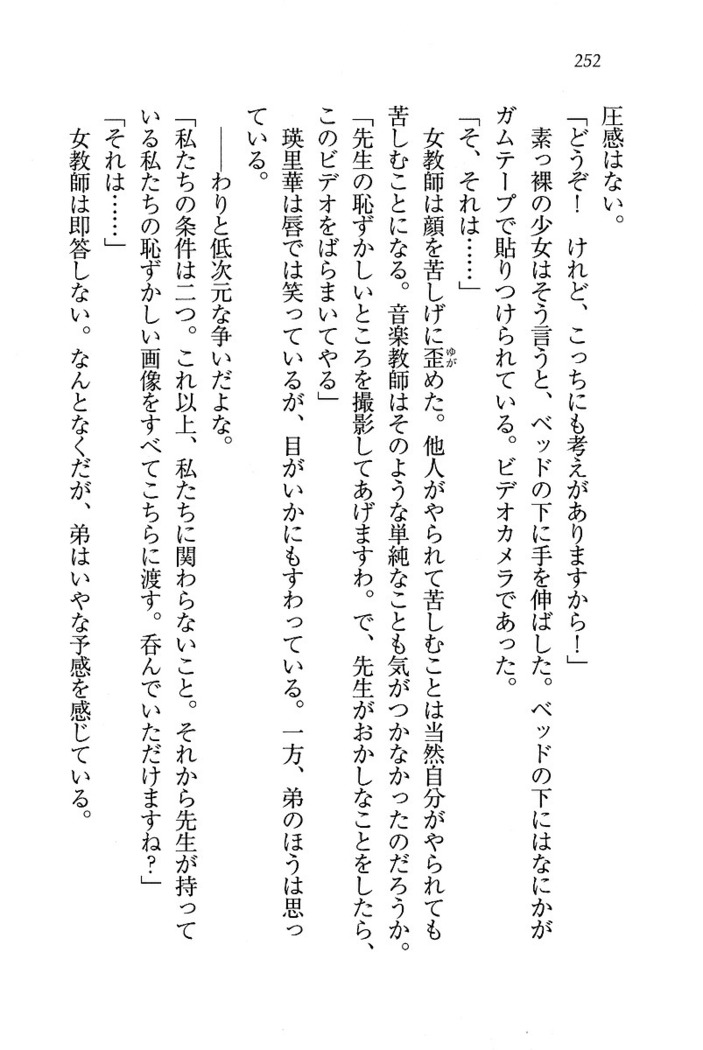 252
圧感はない。
「どうぞ！　けれど、こっちにも考えがありますから！」
素っ裸の少女はそう言うと、ベッドの下に手を伸ばした。ベッドの下にはなにかが
ガムテープで貼りつけられている。ビデオカメラであった。
「そ、それは……」
女教師は顔を苦しげに歪めた。他人がやられて苦しむことは当然自分がやられても
ゆが
苦しむことになる。音楽教師はそのような単純なことも気がつかなかったのだろうか。
「先生の恥ずかしいところを撮影してあげますわ。で、先生がおかしなことをしたら、
このビデオをばらまいてやる」
瑛里華は唇では笑っているが、目がいかにもすわっている。一方、弟のほうは思っ
ている。
――わりと低次元な争いだよな。
「私たちの条件は二つ。これ以上、私たちに関わらないこと。それから先生が持って
いる私たちの恥ずかしい画像をすべてこちらに渡す。呑んでいただけますね？」
「それは……」
女教師は即答しない。なんとなくだが、弟はいやな予感を感じている。